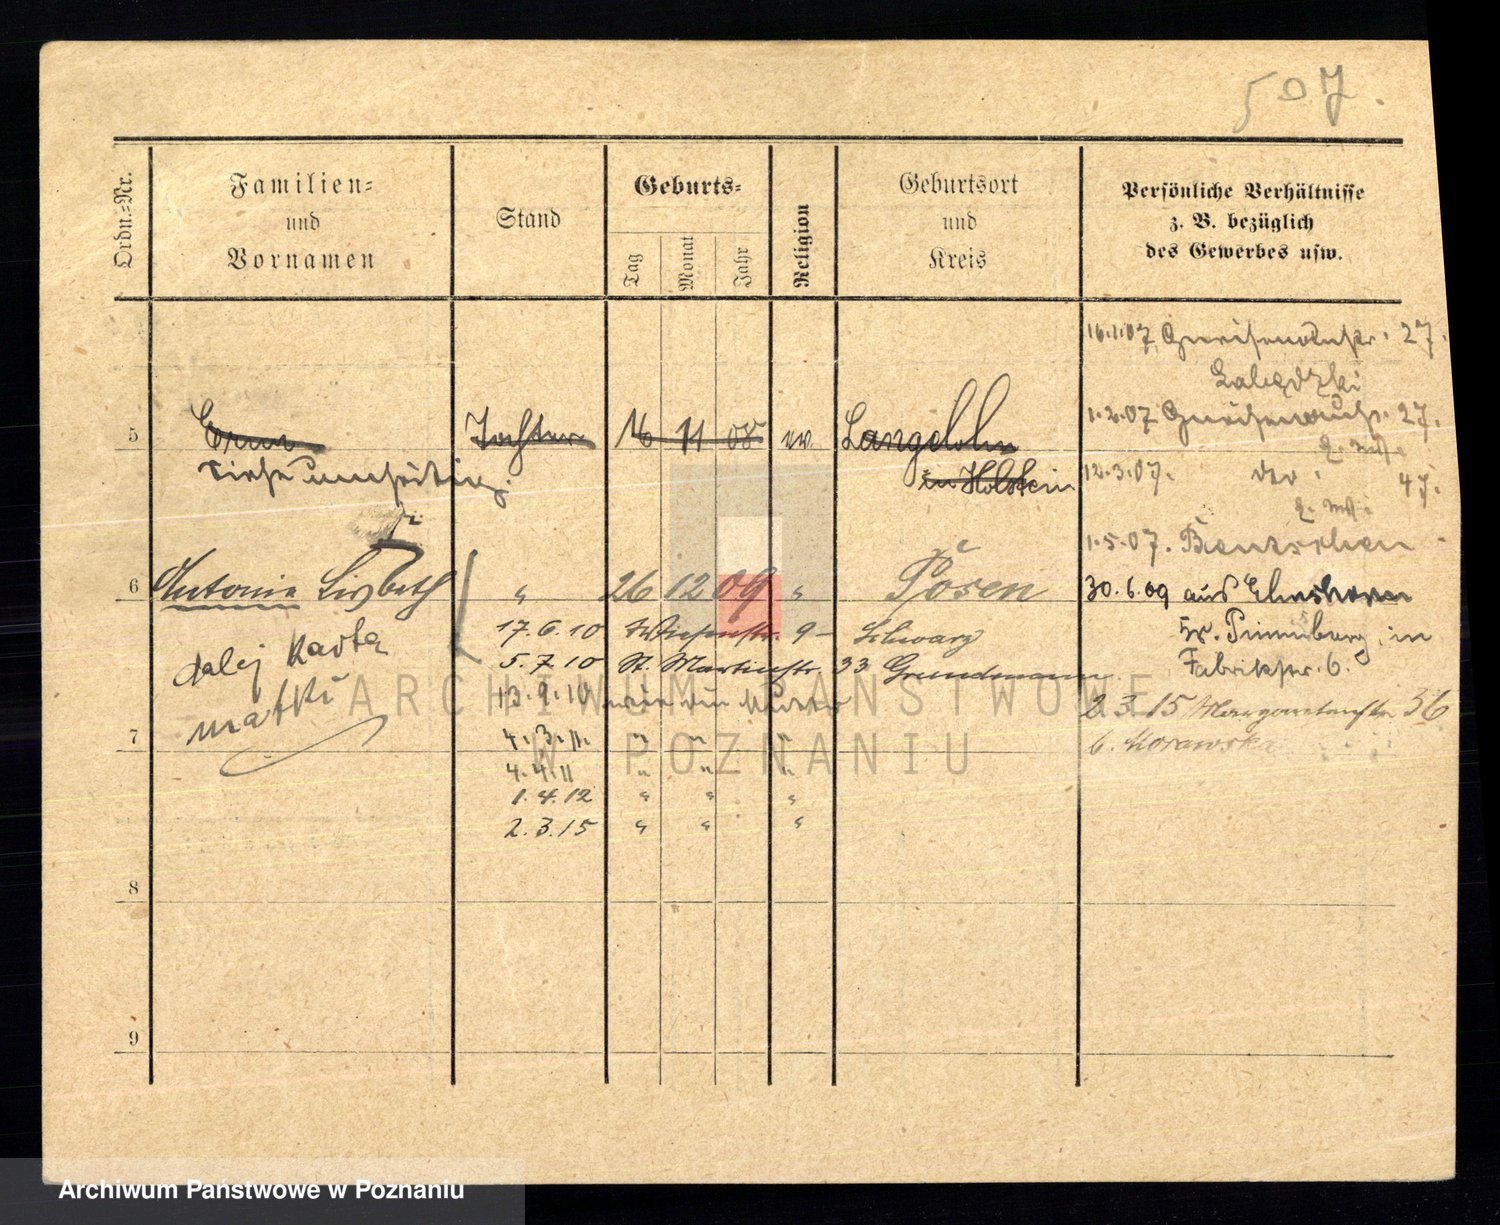 507.
Ordn.-Nr.
Familien-
und
Vornamen
Stand
Geburts-
Tag
Monat
Jahr
Religion
Geburtsort
und
Kreis
Persönliche Verhältnisse
z. B. bezüglich
des Gewerbes usw.
16.1.07 Gneisenaustr. 27.
Zalędzki
1.2.07 Gneisenaustr. 27.
5 Erna Tochter 16 11 08 ev. Langelohe
in Holstein
siehe umseitig.
12.3.07. 47.
1.5.07. Bentschen
6 Antonie Lisbeth " 26 12 09 " Posen
30.6.09 aus Elmshorn
Kr. Pinneberg in
Fabrikstr. 6.
17.6.10 Wiesenstr. 9 Schwarz
5.7.10 St. Martinstr. 33 Grundmann
dalej karta
matki
13.9.10 wie die Mutter
2.3.15 Margaretenstr. 36
b. Morawska
7
4.3.11. " " "
4.4.11 " " "
1.4.12 " " "
2.3.15 " " "
8
9
ARCHIWUM PAŃSTWOWE
W POZNANIU
Archiwum Państwowe w Poznaniu